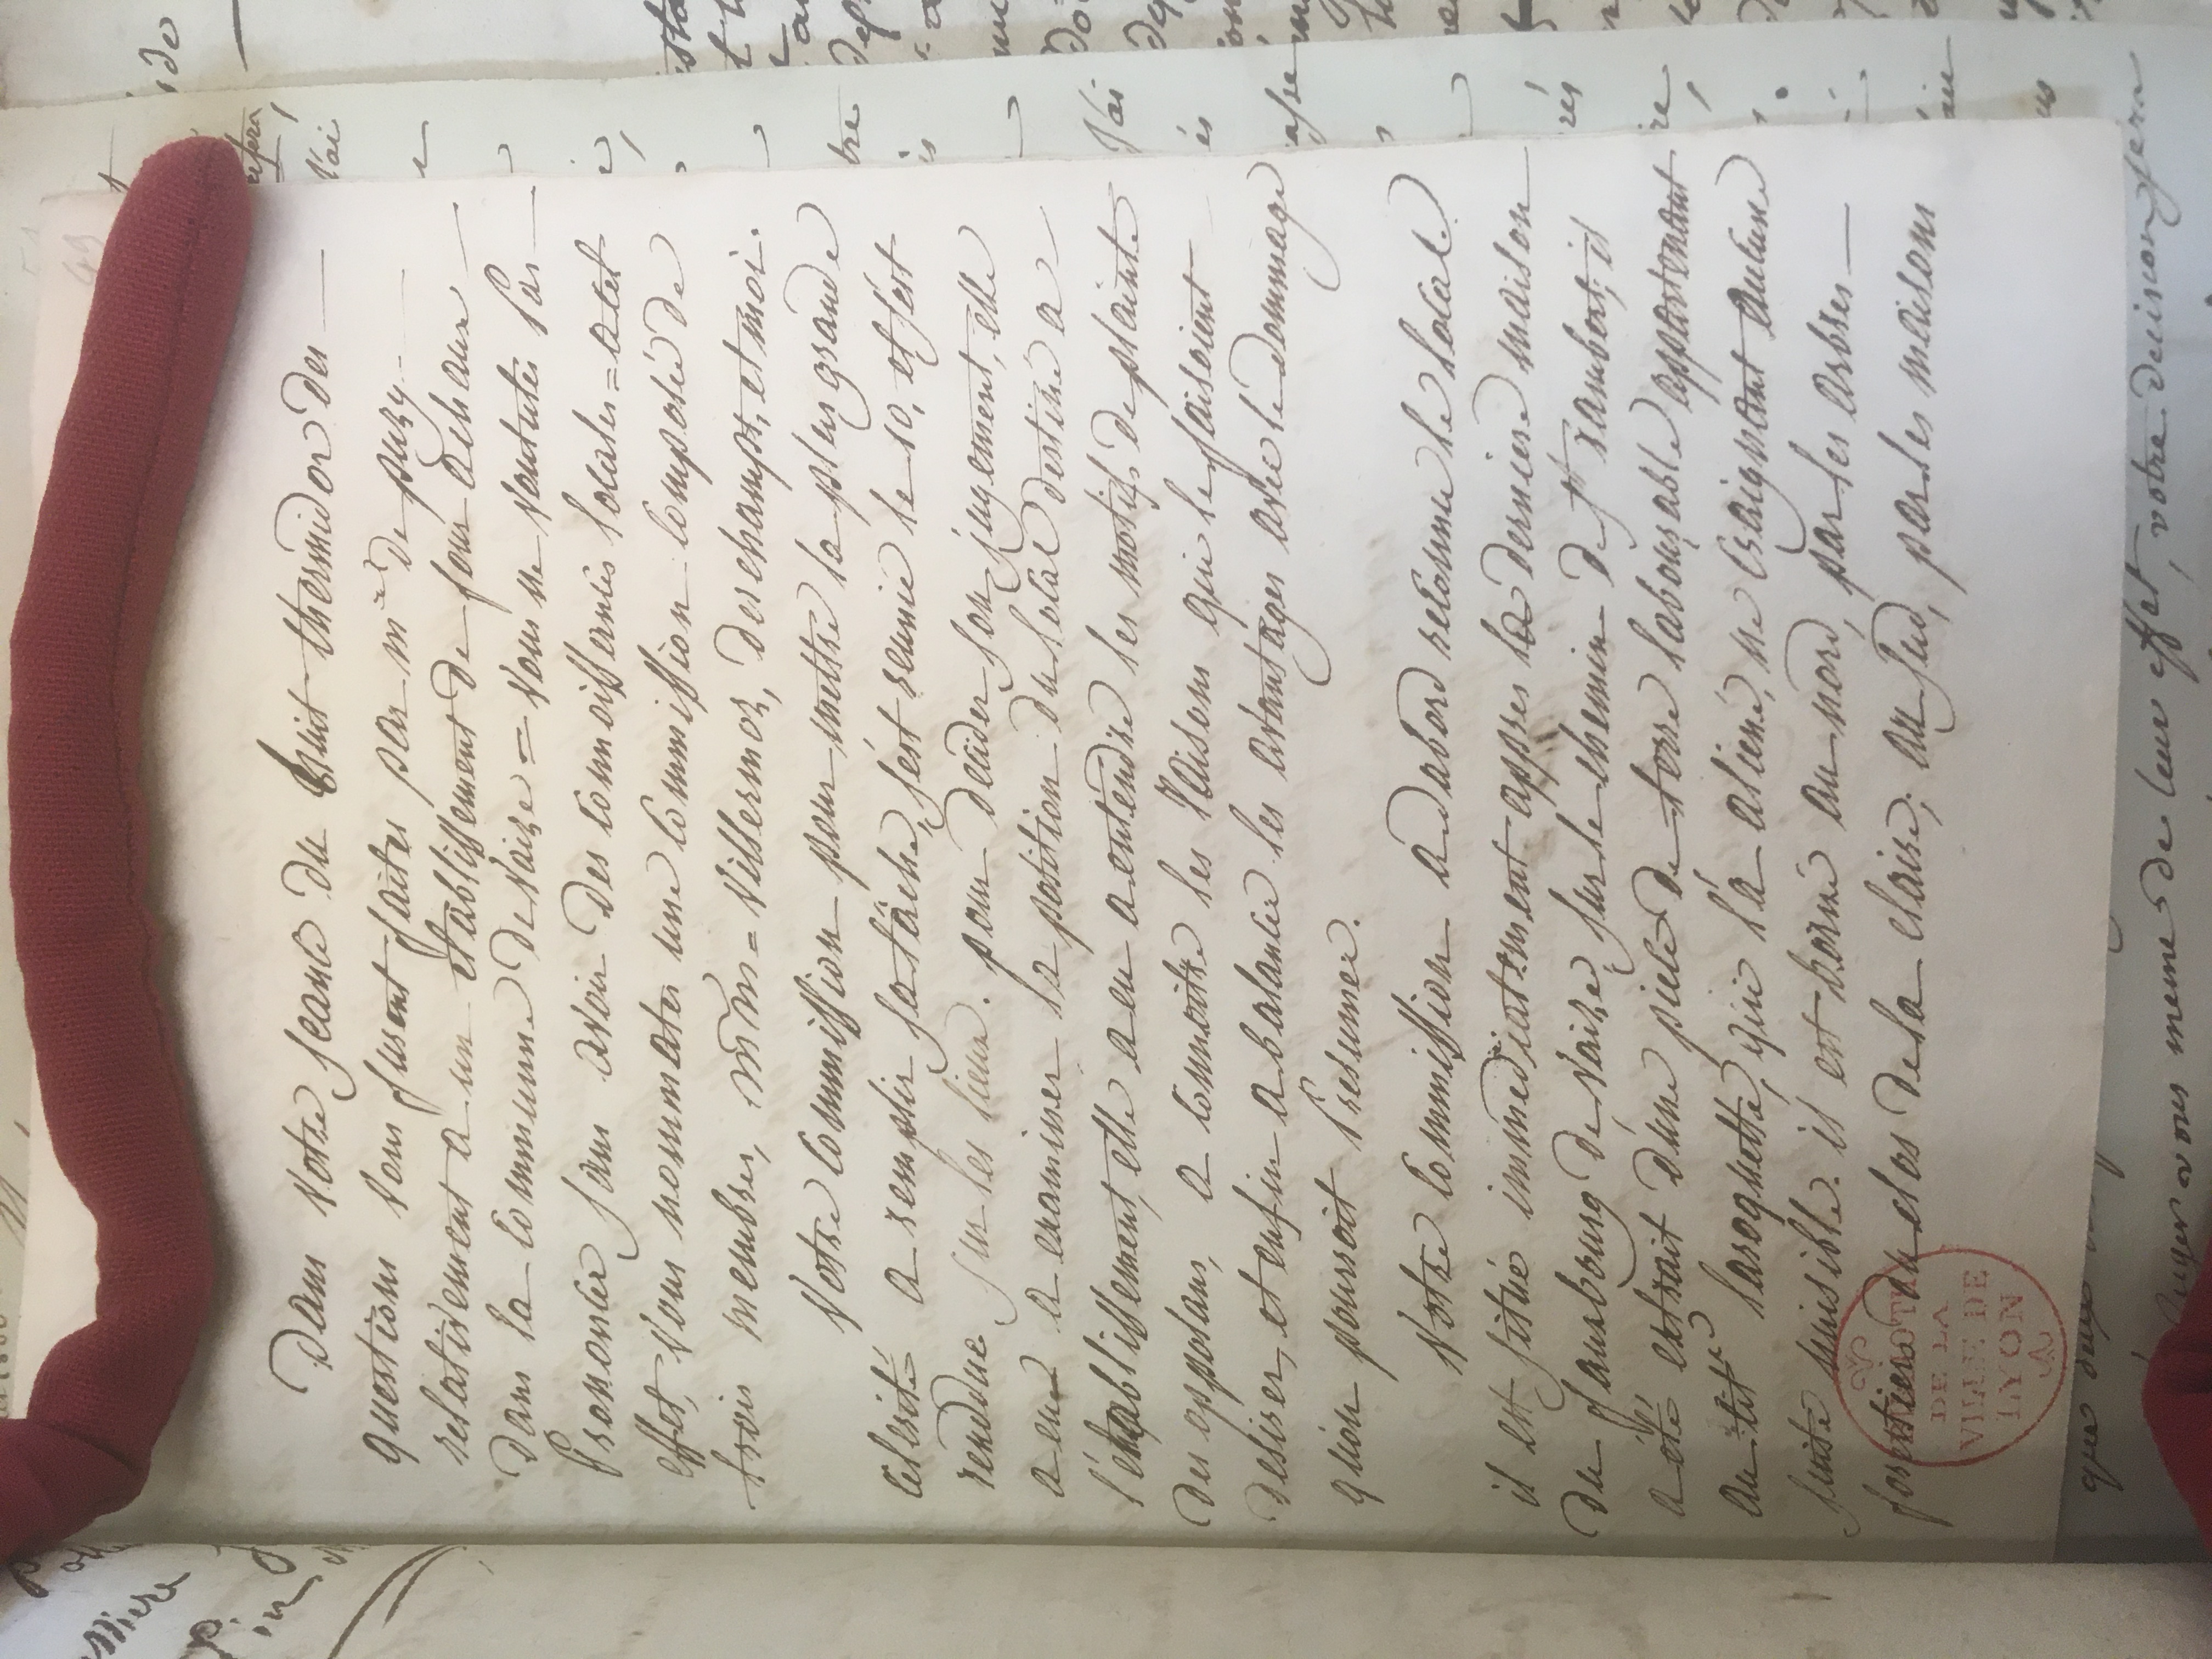 Dans votre seance du huit thermidor des
questions vous furent faites par mr de puzy
relativement a un etablissement de four a chaux
dans la commune de vaize = vous ne voulutes pas
prononcer sans avoir des connoissances locales = a cet
effet, vous nommates une commission composée de
trois membres, mm = Villermoz, deschamps, et moi.
votre commission pour mettre la plus grande
celerité a remplir sa tâche, s'est reunie le 10, et s'est
rendue sur les lieux. pour decider son jugement, elle
a eu a examiner la position du local destiné a
l'etablissement, elle a eu a entendre les motifs de plainte
des opposans, a connoitre les raisons que le faisoient
desirer, et enfin a balancer les avantages avec le dommage
qu'on pourroit presumer.
votre commission a d'abord reconnu le local
il est situé immediatement apres la derniere maison
du fauxbourg de vaize sur le chemin de st rambert, il
a été extrait d'une piece de terre labourable appartenant
au tit laroquette, qui l'a aliené, ne craignant aucune
suite nuisible. il est borné au nord, par les arbres
forestiers du clos de la claire; au sud, par les maisons
BIBLIOTH
DE LA
VILLE DE
LYON